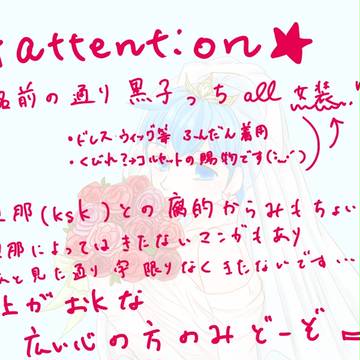 ★attention★
名前の通り黒子っち all 女装
・ドレス・ウィッグ等 ふんだん着用
・くびれ?→コルセットの賜物です
旦那(ksk)との腐的からみもちょい
旦那によってはきたないマンガもあり
見た通り字限りなくきたないです…
上がおkな
広い心の方のみどーぞ